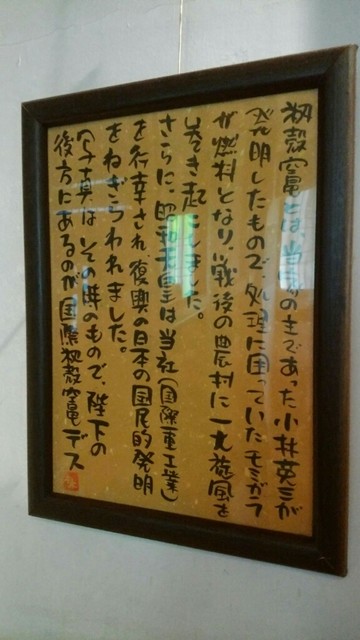 籾殻竃とは、当の主であった小林英三が
発明したもので、処理に困っていたモミガラ
が燃料となり、戦後の農村に一大旋風を
巻き起こしました。
さらに、昭和天皇は当社(国際重工業)
を行幸され、復興の日本の国民的発明
をねぎらわれました。
写真はその時のもので、陛下の
後方にあるのが国際籾殻竃デス